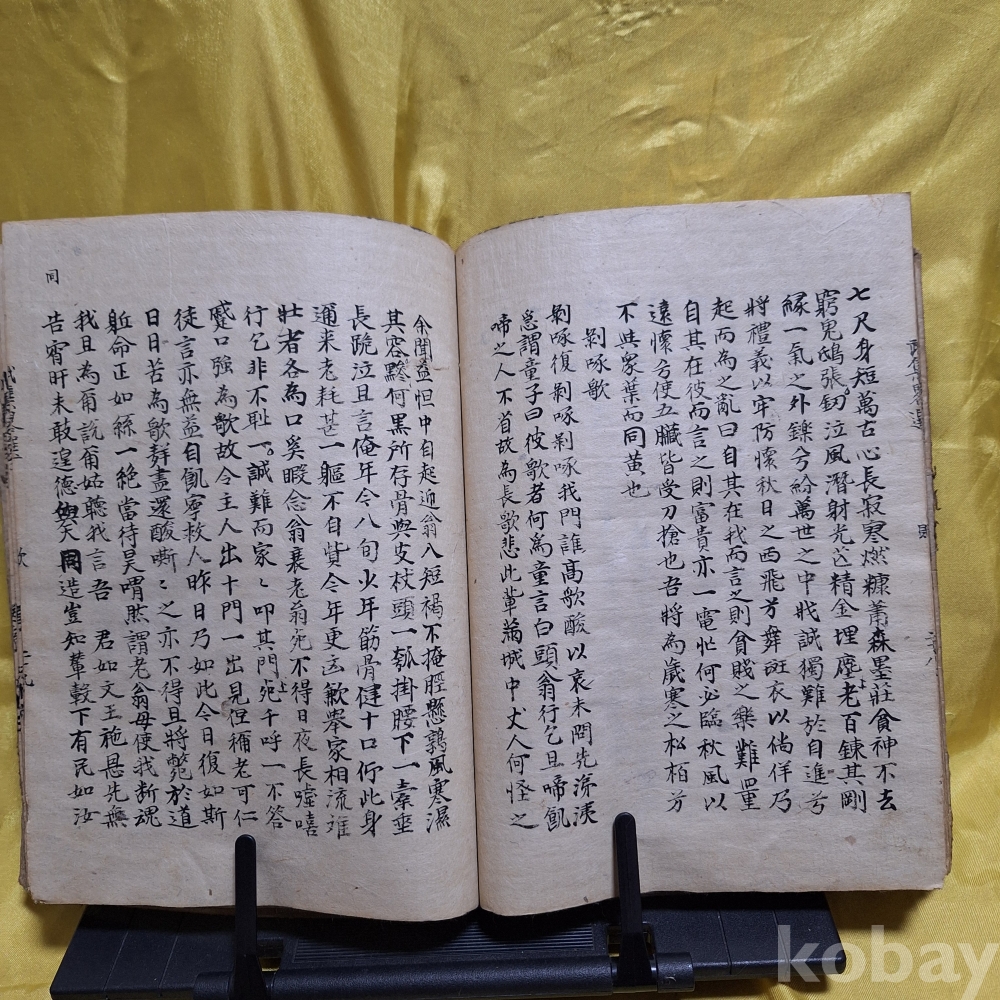 七尺身短萬古心長寂寒燃糠蕭森墨莊貧神不去
窮鬼鴟張釰泣風潛射光芒精金埋塵老百鍊其剛
緣一氣之外鑠兮紛萬世之中戕誠獨難於自進兮
將禮義以牢防懷秋日之西飛兮舞斑衣以倘佯乃
起而為之亂曰自其在我而言之則貧賤之樂難量
自其在彼而言之則富貴亦一電忙何必臨秋風以
遠懷兮使五臟皆受刀搶也吾將為歲寒之松栢兮
不與衆葉而同黃也
剝啄歌
剝啄復剝啄剝啄我門誰高歌酸以哀未問先涕洟
急謂童子曰彼歌者何為童言白頭翁行乞且啼飢
啼之人不首故為長歌悲此輩萬城中犬人何怪之
余聞益怛中自起迎翁入短褐不掩脛懸鶉風寒濕
其容黲何黑所存骨與支杖頭一瓠掛腰下一橐垂
長跪泣且言俺年今八旬少年筋骨健十口仰此身
邇来老耗甚一軀不自貲今年更凶歉擧家相流離
壯者各為口奚暇念翁衰老翁死不得日夜長噓嘻
行乞非不耻誠難而家〻叩其門死千呼一不答
蹙口強為歌故令主人出十門一出見但稱老可仁
徒言亦無益自飢寧救人昨日乃如此今日復如斯
日日苦為歌群盡還酸嘶〻之亦不得且將斃於道
軀命正如絲一絶當待昊喟然謂老翁毋使我断魂
我且為爾說爾姑聽我言吾 君如文王施恩先無
告宵旰未敢遑德與天同造豈知輦轂下有民如汝
同